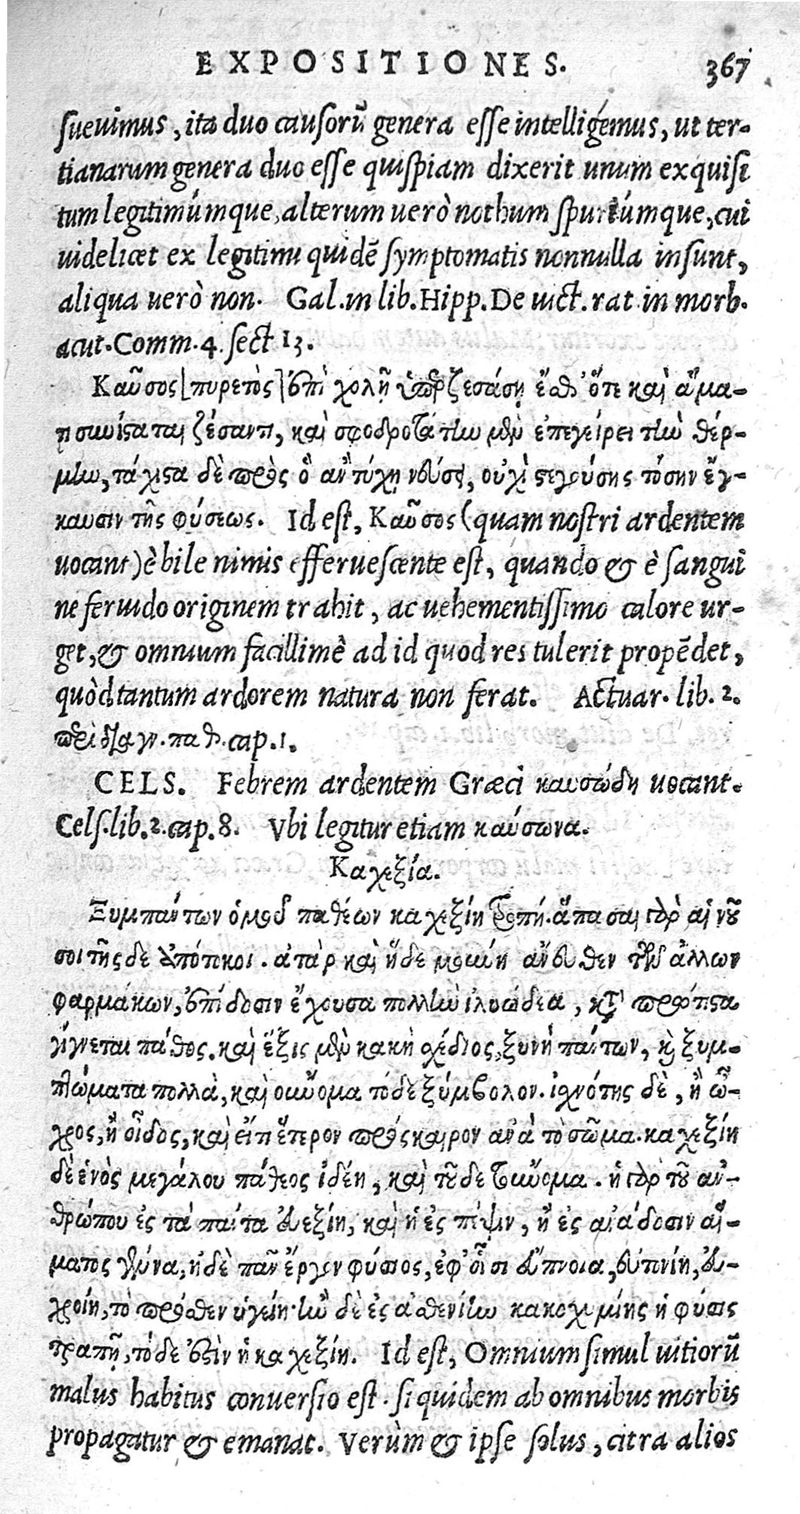 EXPOSITIONES. 367
sueuimus, ita duo causorũ genera esse intelligémus, ut ter-
tianarum genera duo esse quispiam dixerit unum exquisi
tum legitimúmque, alterum uerò nothum spuriúmque, cui
uidelicet ex legitimu quidẽ symptomatis nonnulla insunt,
aliqua uerò non. Gal. in lib. Hipp. De uict. rat in morb.
acut. Comm. 4. sect 13.
Καῦσος [πυρετὸς] ἐπὶ χολῇ ὑπερζεσάσῃ ἔσθ' ὅτε καὶ αἵμα-
τι συνίσταται ζέσαντι, καὶ σφοδροτάτην μὲν ἐπεγείρει τὴν θέρ-
μην, τάχιστα δὲ πρὸς ὃ ἂν τύχῃ νεύσει, οὐχὶ στεγούσης τόσην ἔγ-
καυσιν τῆς φύσεως. Id est, Καῦσος (quam nostri ardentem
uocant) è bile nimis efferuescente est, quando & è sangui
ne feruido originem trahit, ac uehementissimo calore ur-
get, & omnium facillimè ad id quod res tulerit propẽdet,
quòd tantum ardorem natura non ferat. Actuar. lib. 2.
περὶ διαγν. παθ. cap. 1.
CELS. Febrem ardentem Græci καυσώδη uocant.
Cels. lib. 2. cap. 8. Vbi legitur etiam καύσωνα.
Καχεξία.
Ξυμπάντων ὁμοῦ παθέων καχεξίη τροπή. ἅπασαι γὰρ αἱ νοῦ
σοι τῆσδε ἀπότικοι. ἀτὰρ καὶ ἥδε μούνη ἄνευθεν τῶν ἄλλων
φαρμάκων, ἐπίδοσιν ἔχουσα πολλὴν ἰλυώδεα, κατ' πρώτιστα
γίγνεται πάθος, καὶ ἕξις μὲν κακὴ σχέδιος, ξυνὴ πάντων, καὶ ξυμ-
πτώματα πολλὰ, καὶ οὔνομα τόδε ξύμβολον. ἰσχνότης δὲ, ἢ ὦ-
χρος, ἢ οἶδος, καὶ εἴ τι ἕτερον πρόσκαιρον ἀνὰ τὸ σῶμα. καχεξίη
δὲ ἑνὸς μεγάλου πάθεος ἰδέη, καὶ τοῦδε τοὔνομα. ἡ γὰρ τοῦ ἀν-
θρώπου ἐς τὰ πάντα εὐεξίη, καὶ ἡ ἐς πέψιν, ἢ ἐς ἀνάδοσιν αἵ-
ματος γέννα, ἠδὲ πᾶν ἔργον φύσιος, ἐφ' οἷσι εὔπνοια, εὐτονίη, εὔ-
χροίη, τὸ πρόσθεν ὑγιείη. ἢν δὲ ἐς ἀσθενίην κακοχυμίης ἡ φύσις
τραπῇ, τόδε ἐστὶν ἡ καχεξίη. Id est, Omnium simul uitiorũ
malus habitus conuersio est. siquidem ab omnibus morbis
propagatur & emanat. Verùm & ipse solus, citra alios